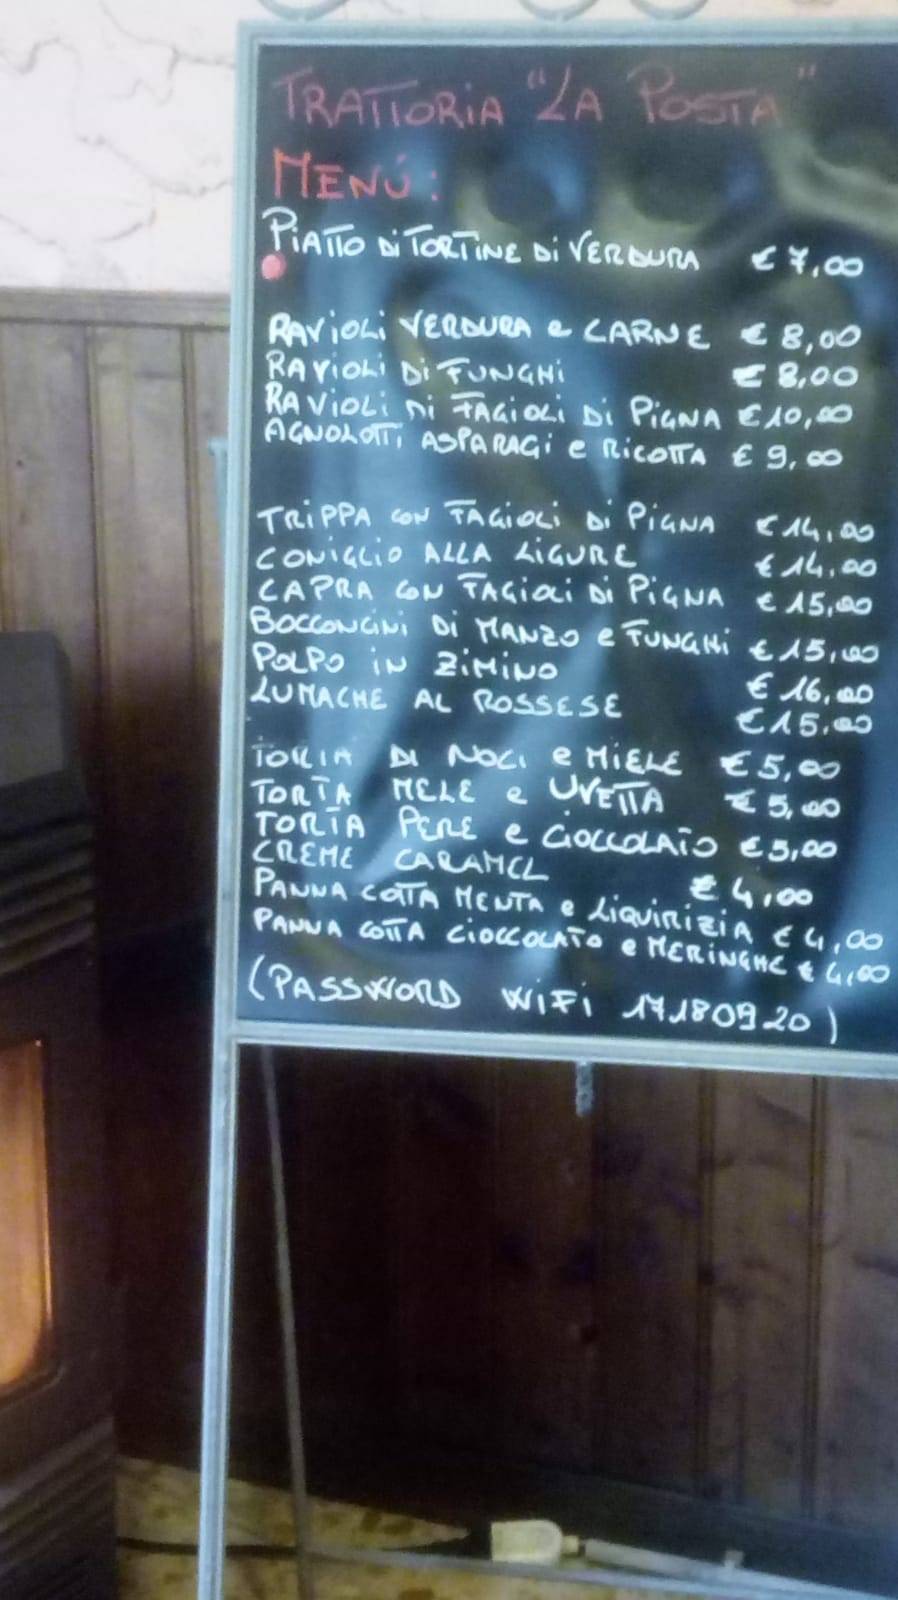 TRATTORIA "LA POSTA"
MENÚ:
PIATTO DI TORTINE DI VERDURA € 7,00
RAVIOLI VERDURA e CARNE € 8,00
RAVIOLI DI FUNGHI € 8,00
RAVIOLI DI FAGIOLI DI PIGNA € 10,00
AGNOLOTTI ASPARAGI e RICOTTA € 9,00
TRIPPA CON FAGIOLI DI PIGNA € 14,00
CONIGLIO ALLA LIGURE € 14,00
CAPRA CON FAGIOLI DI PIGNA € 15,00
BOCCONCINI DI MANZO e FUNGHI € 15,00
POLPO IN ZIMINO € 16,00
LUMACHE AL ROSSESE € 15,00
TORTA DI NOCI e MIELE € 5,00
TORTA MELE e UVETTA € 5,00
TORTA PERE e CIOCCOLATO € 5,00
CREME CARAMEL € 4,00
PANNA COTTA MENTA e LIQUIRIZIA € 4,00
PANNA COTTA CIOCCOLATO e MERINGHE € 4,00
(PASSWORD WIFI 17180920)